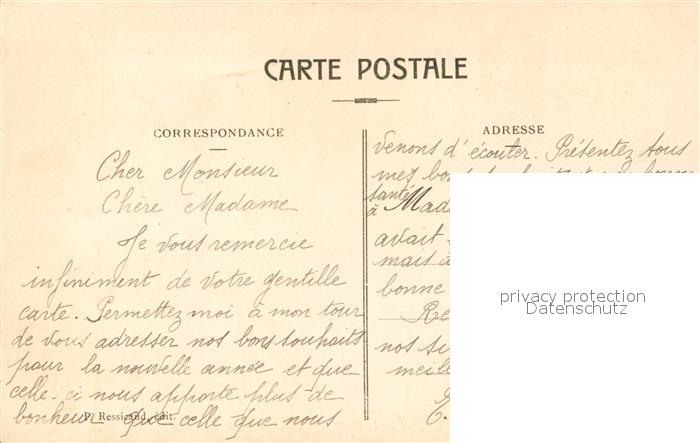 CARTE POSTALE
CORRESPONDANCE
Cher Monsieur
Chère Madame
Je vous remercie
infiniment de votre gentille
carte. Permettez moi à mon tour
de vous adresser nos bons souhaits
pour la nouvelle année et que
celle-ci nous apporte plus de
bonheur que celle que nous
P. Ressicaud, édit.
ADRESSE
venons d'écouter. Présentez tous
mes bons
santé
à Mad
avait
mais à
bonne
Re
nos
meille
privacy protection
Datenschutz